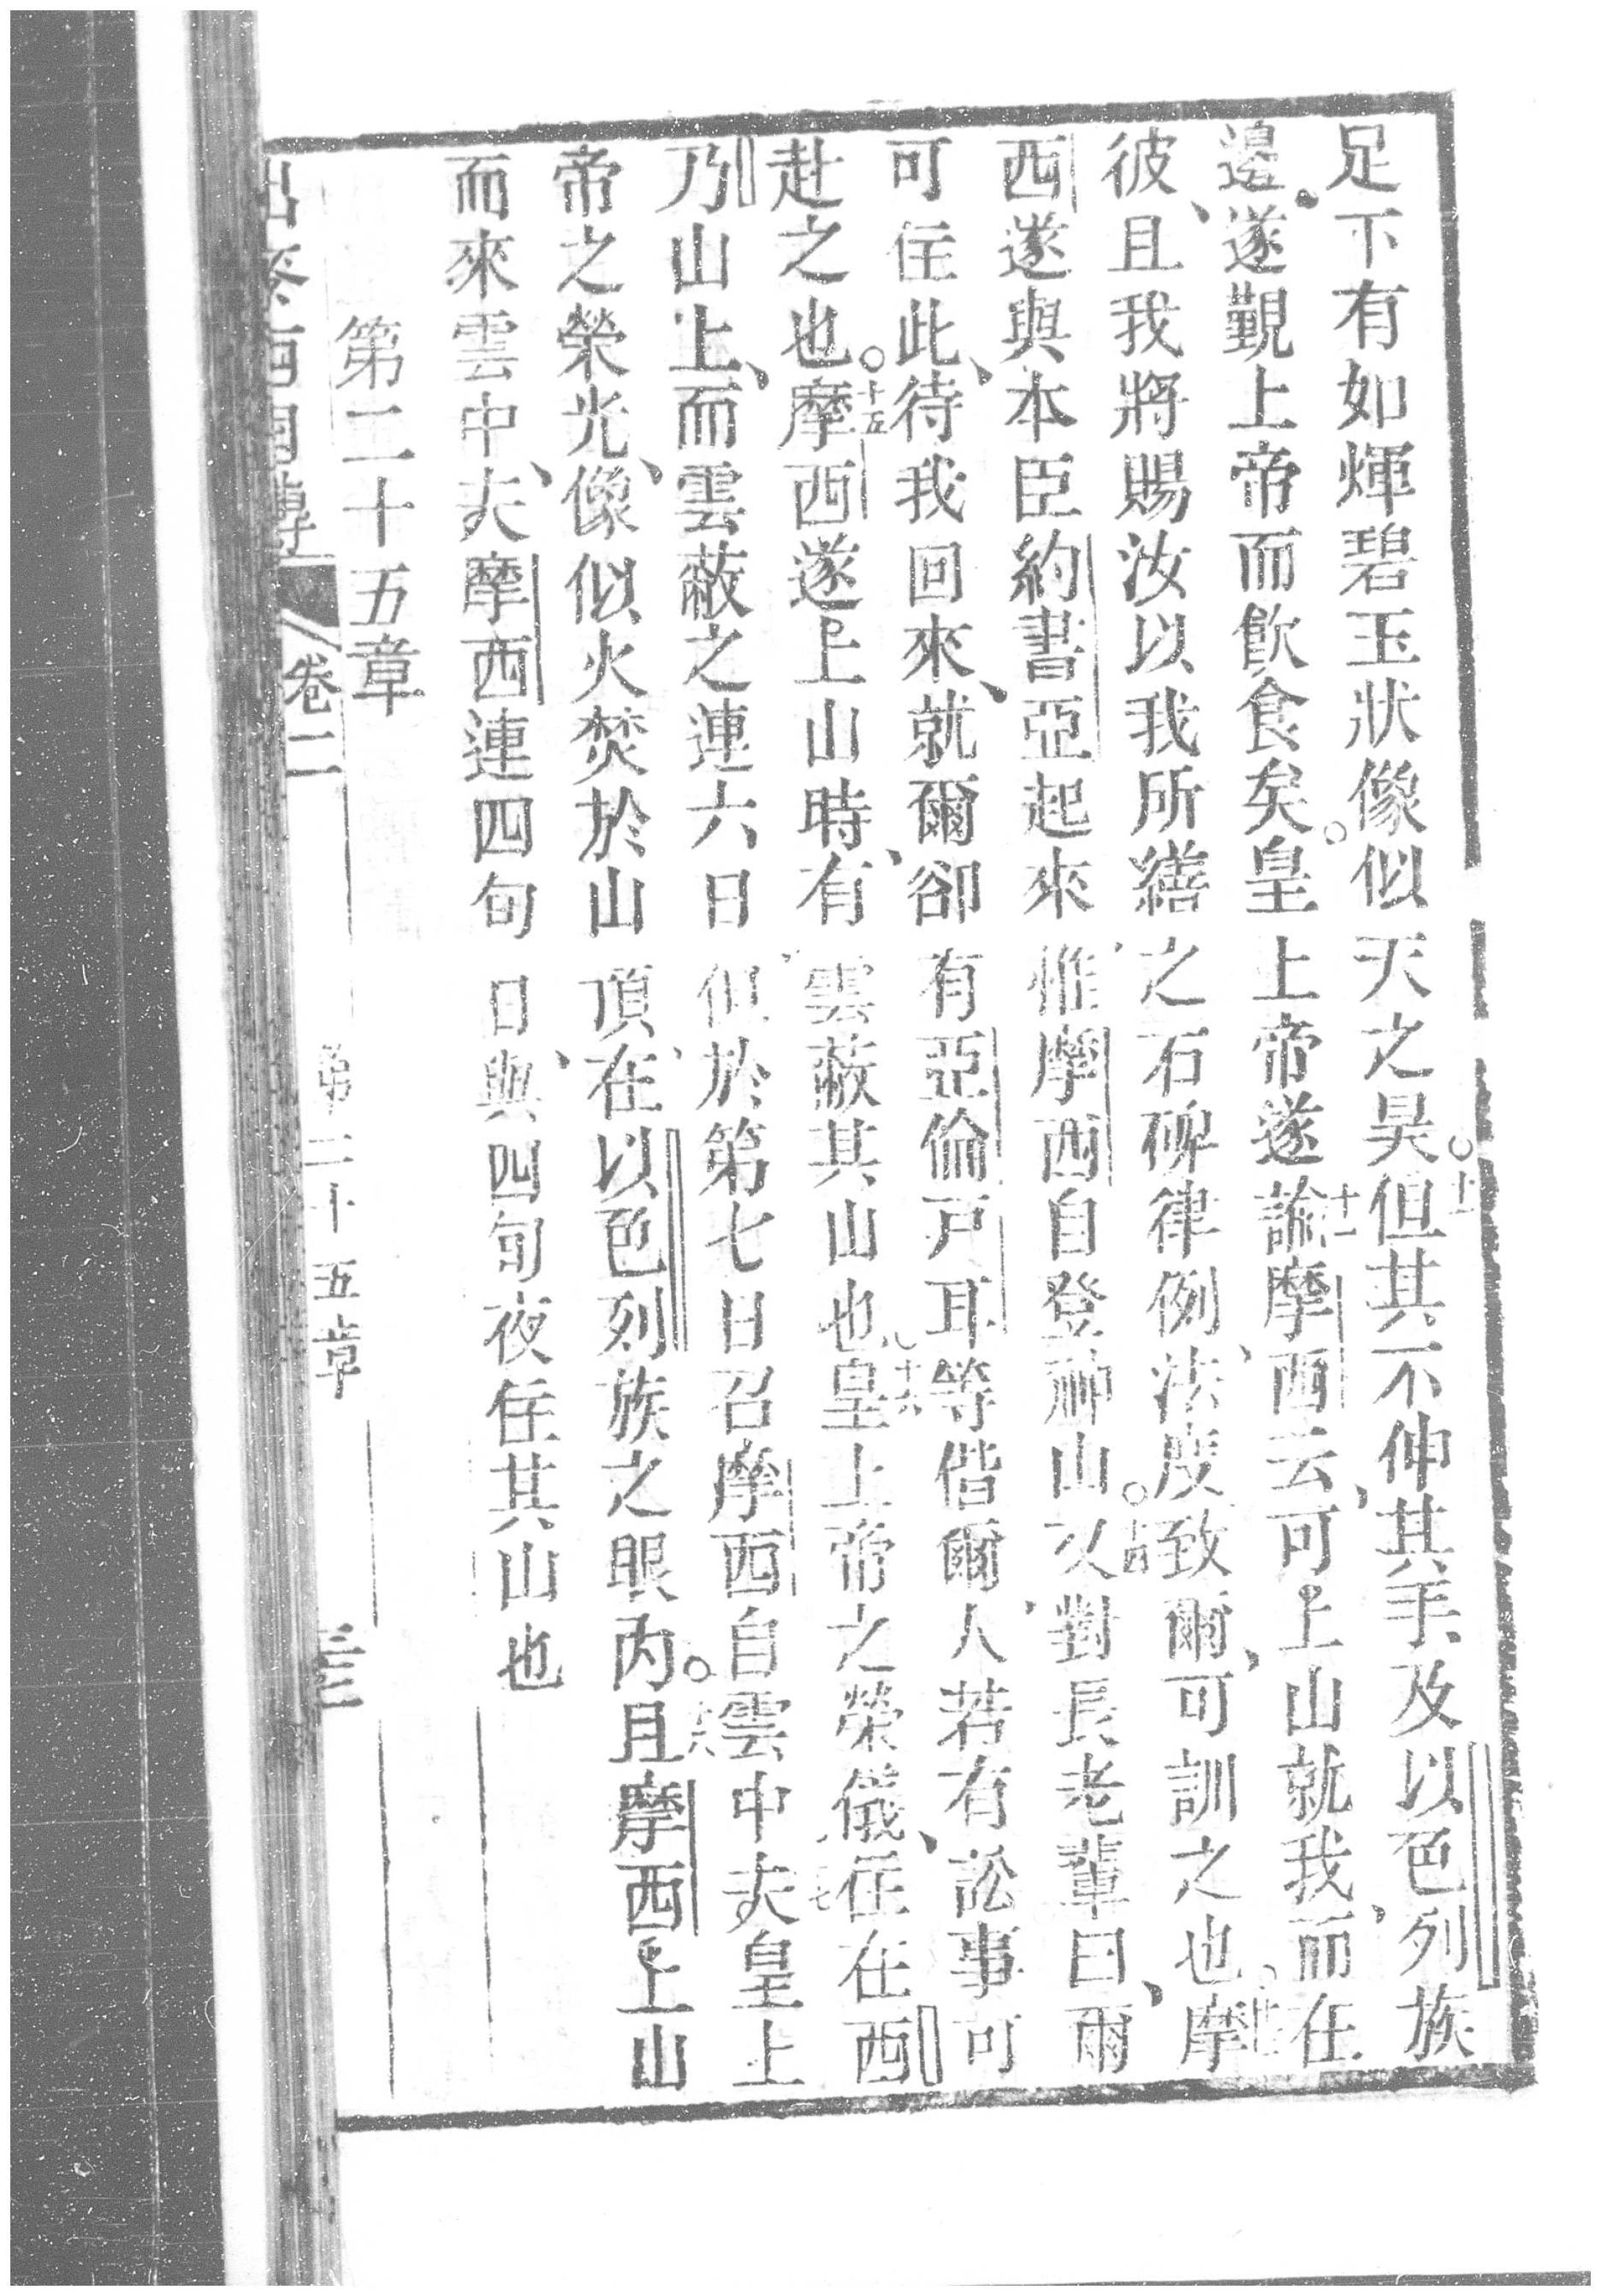 足下有如煇碧玉狀像似天之昊。十一但其不伸其手、及以色列族
邊、遂覲上帝而飲食矣。皇上帝遂諭十二摩西云、可上山就我、而住
彼、且我將賜汝以我所繕之石碑律例、法度致爾、可訓之也。十三摩
西遂與本臣約書亞起來、惟摩西自登神山。十四又對長老輩曰、爾
可住此、待我回來、就爾卻有亞倫戶耳等偕爾、人若有訟事可
赴之也。十五摩西遂上山時、有雲蔽其山也。十六皇上帝之榮儀、住在西
乃山上、而雲蔽之連六日、但於第七日召摩西自雲中夫皇上
帝之榮光、像似火焚於山頂、在以色列族之眼內。十八且摩西上山
而來雲中、夫摩西連四旬日、與四旬夜住其山也
第二十五章
出麥西國傳 卷二 第二十五章 三三